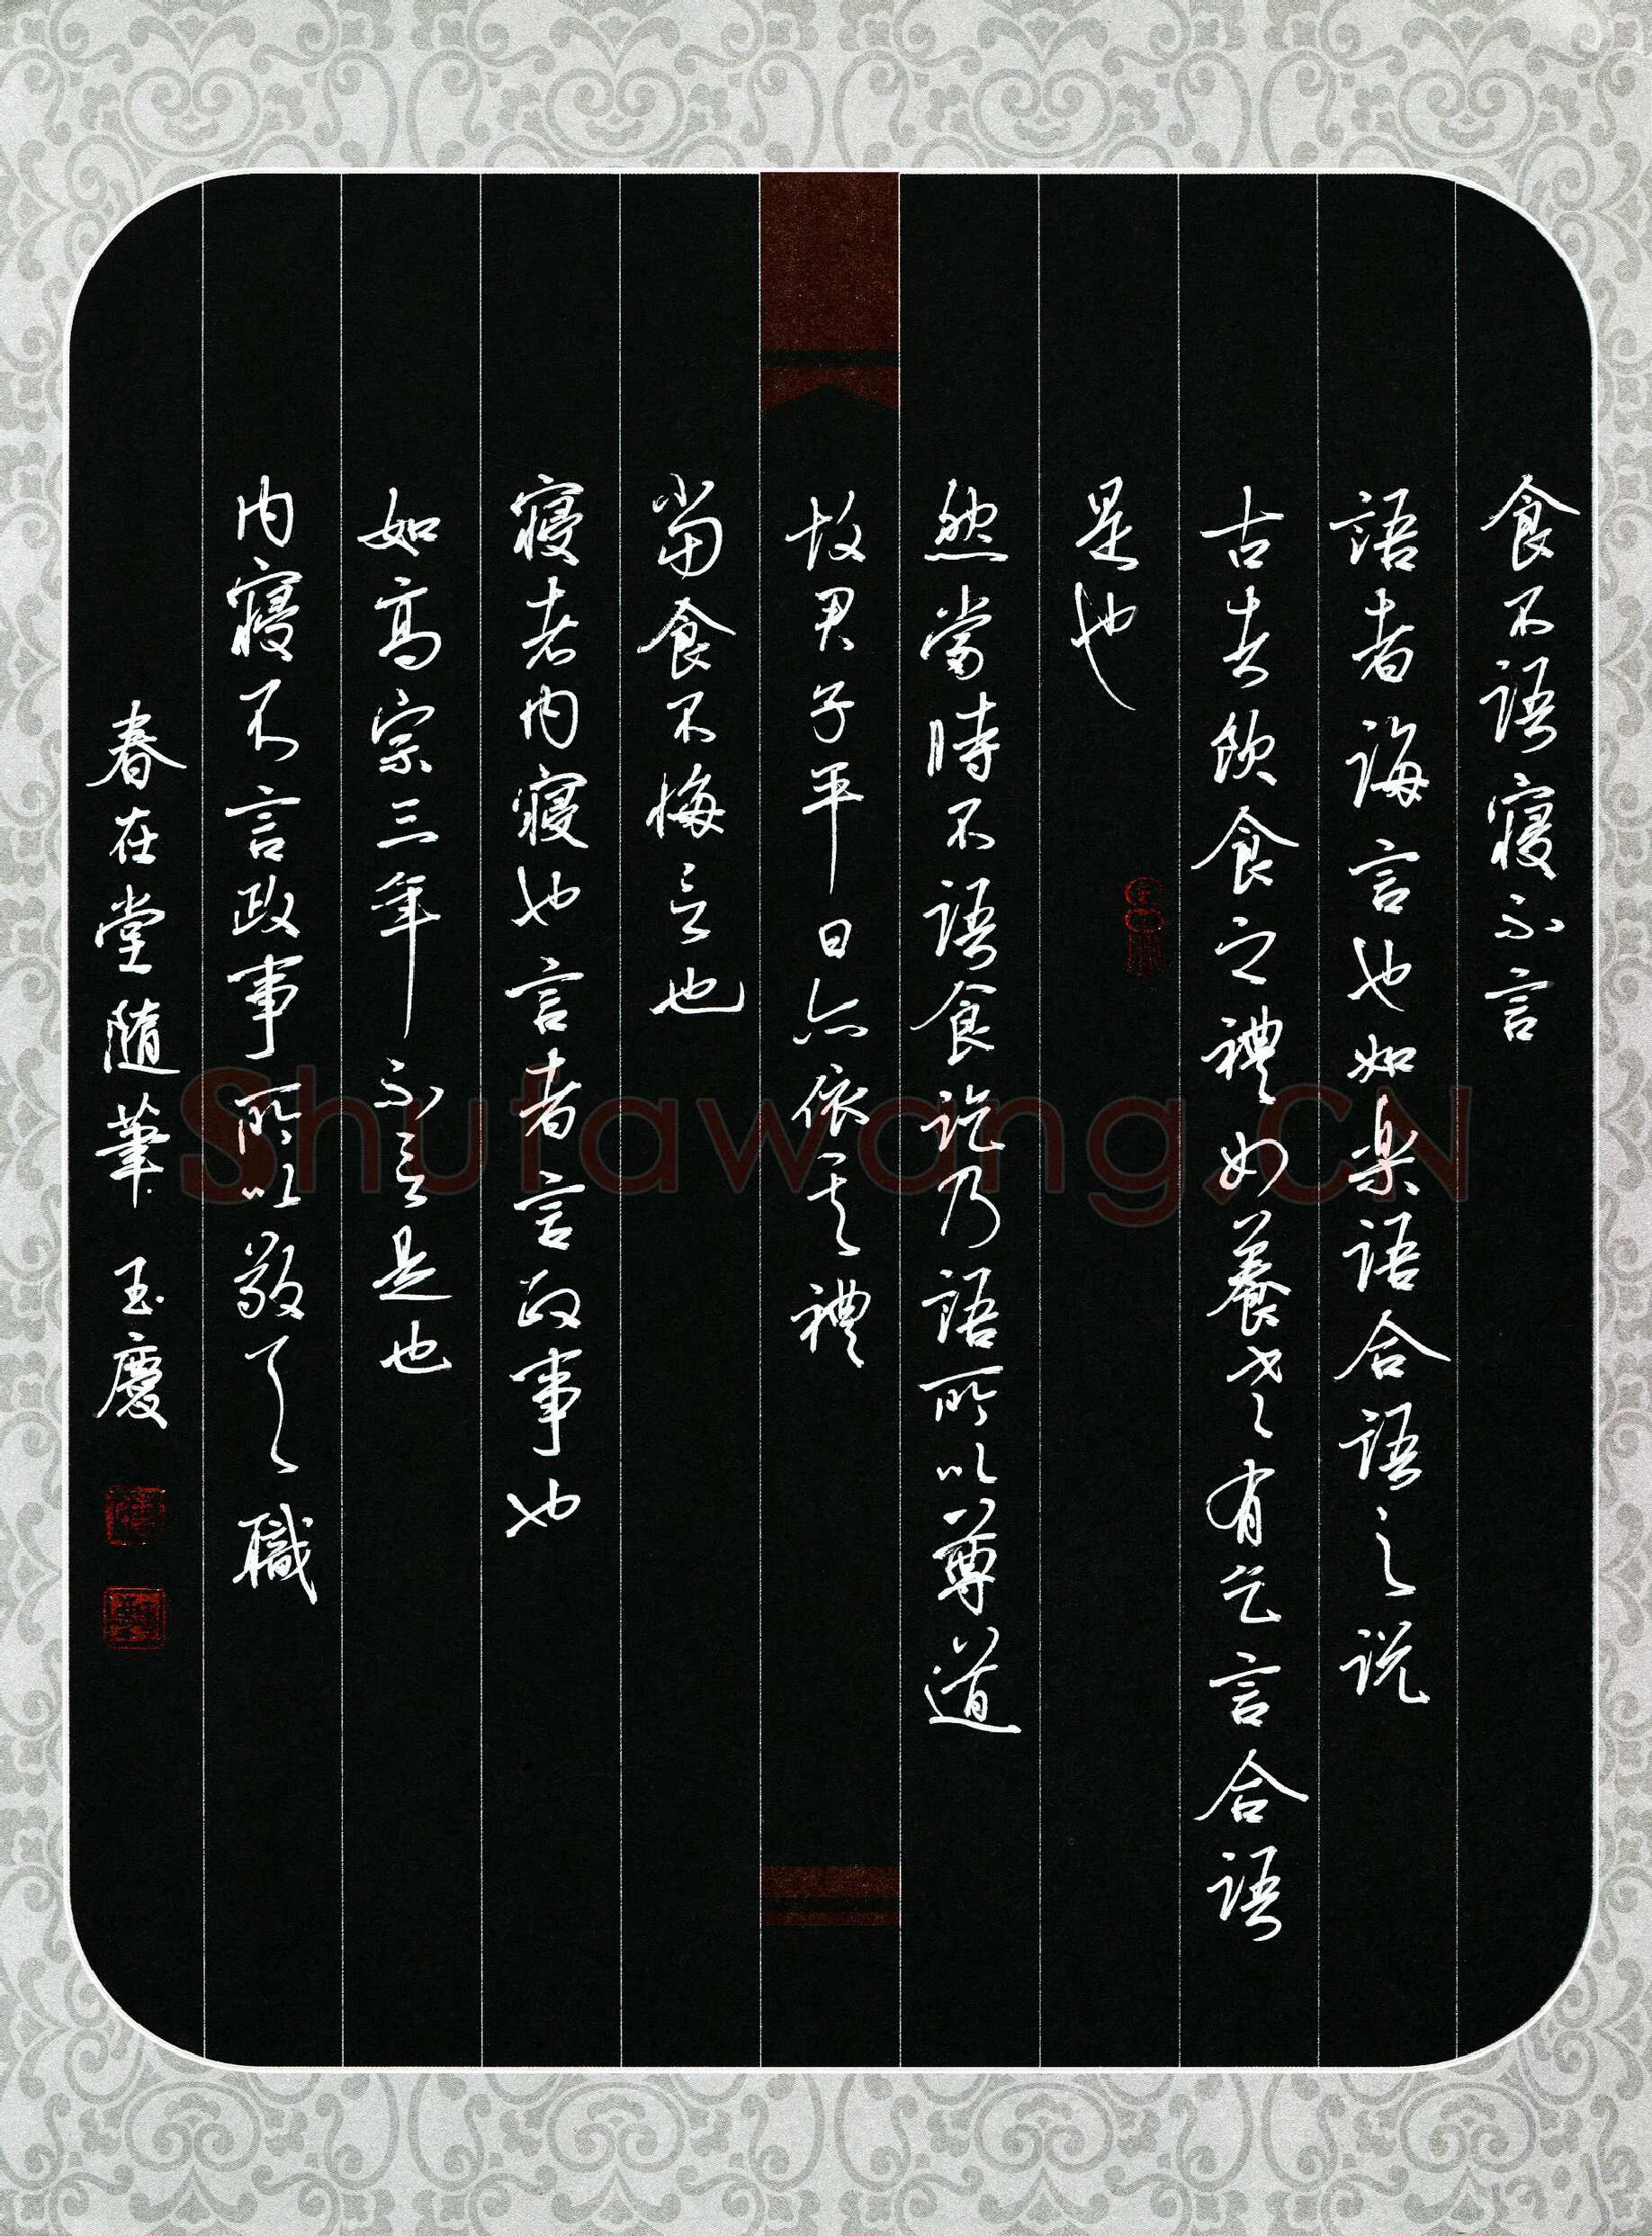 食不語寢不言
語者誨言也如樂語合語之说
古者飲食之禮如養老有乞言合語
是也
然當時不語食訖乃語所以尊道
故君子平日亦依其禮
當食不悔言也
寢者内寢也言者言政事也
如高宗三年不言是也
内寢不言政事所以敬之職
春在堂隨筆 玉慶
Shufawang.CN